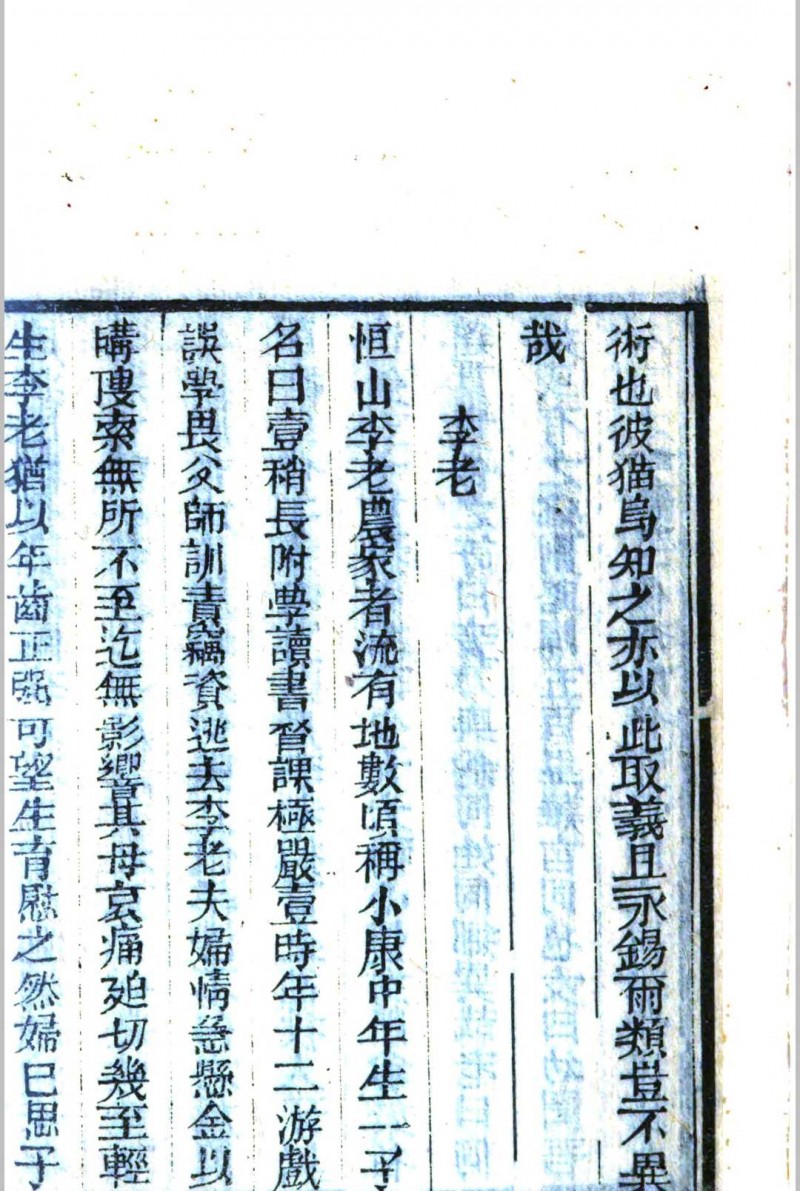 術也彼猫烏知之亦以此取義且永錫爾類豈不異
哉
李老
恒山李老農家者流有地數頃稱小康中年生一子
名曰壹稍長附學讀書督課極嚴壹時年十二游戲
誤學畏父師訓責竊資逃去李老夫婦情急懸金以
購𢯱索無所不至迄無影響其母哀痛廹切幾至輕
生李老猶以年齒正强可望生育慰之然婦已思子